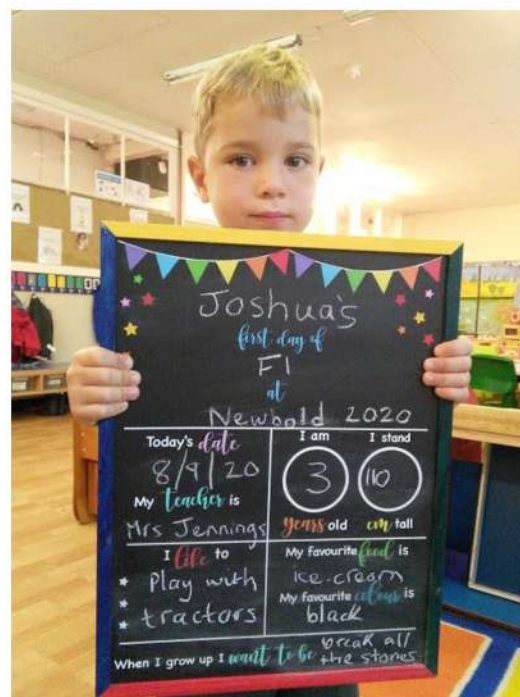 Joshua's
first day of
F1
at
Newbold 2020
Today's date
8/9/20
My teacher is
Mrs Jennings
I am
3
years old
I stand
110
cm tall
I like to
Play with
tractors
My favourite food is
ice-cream
My favourite colour is
black
When I grow up I want to be break all
the stones